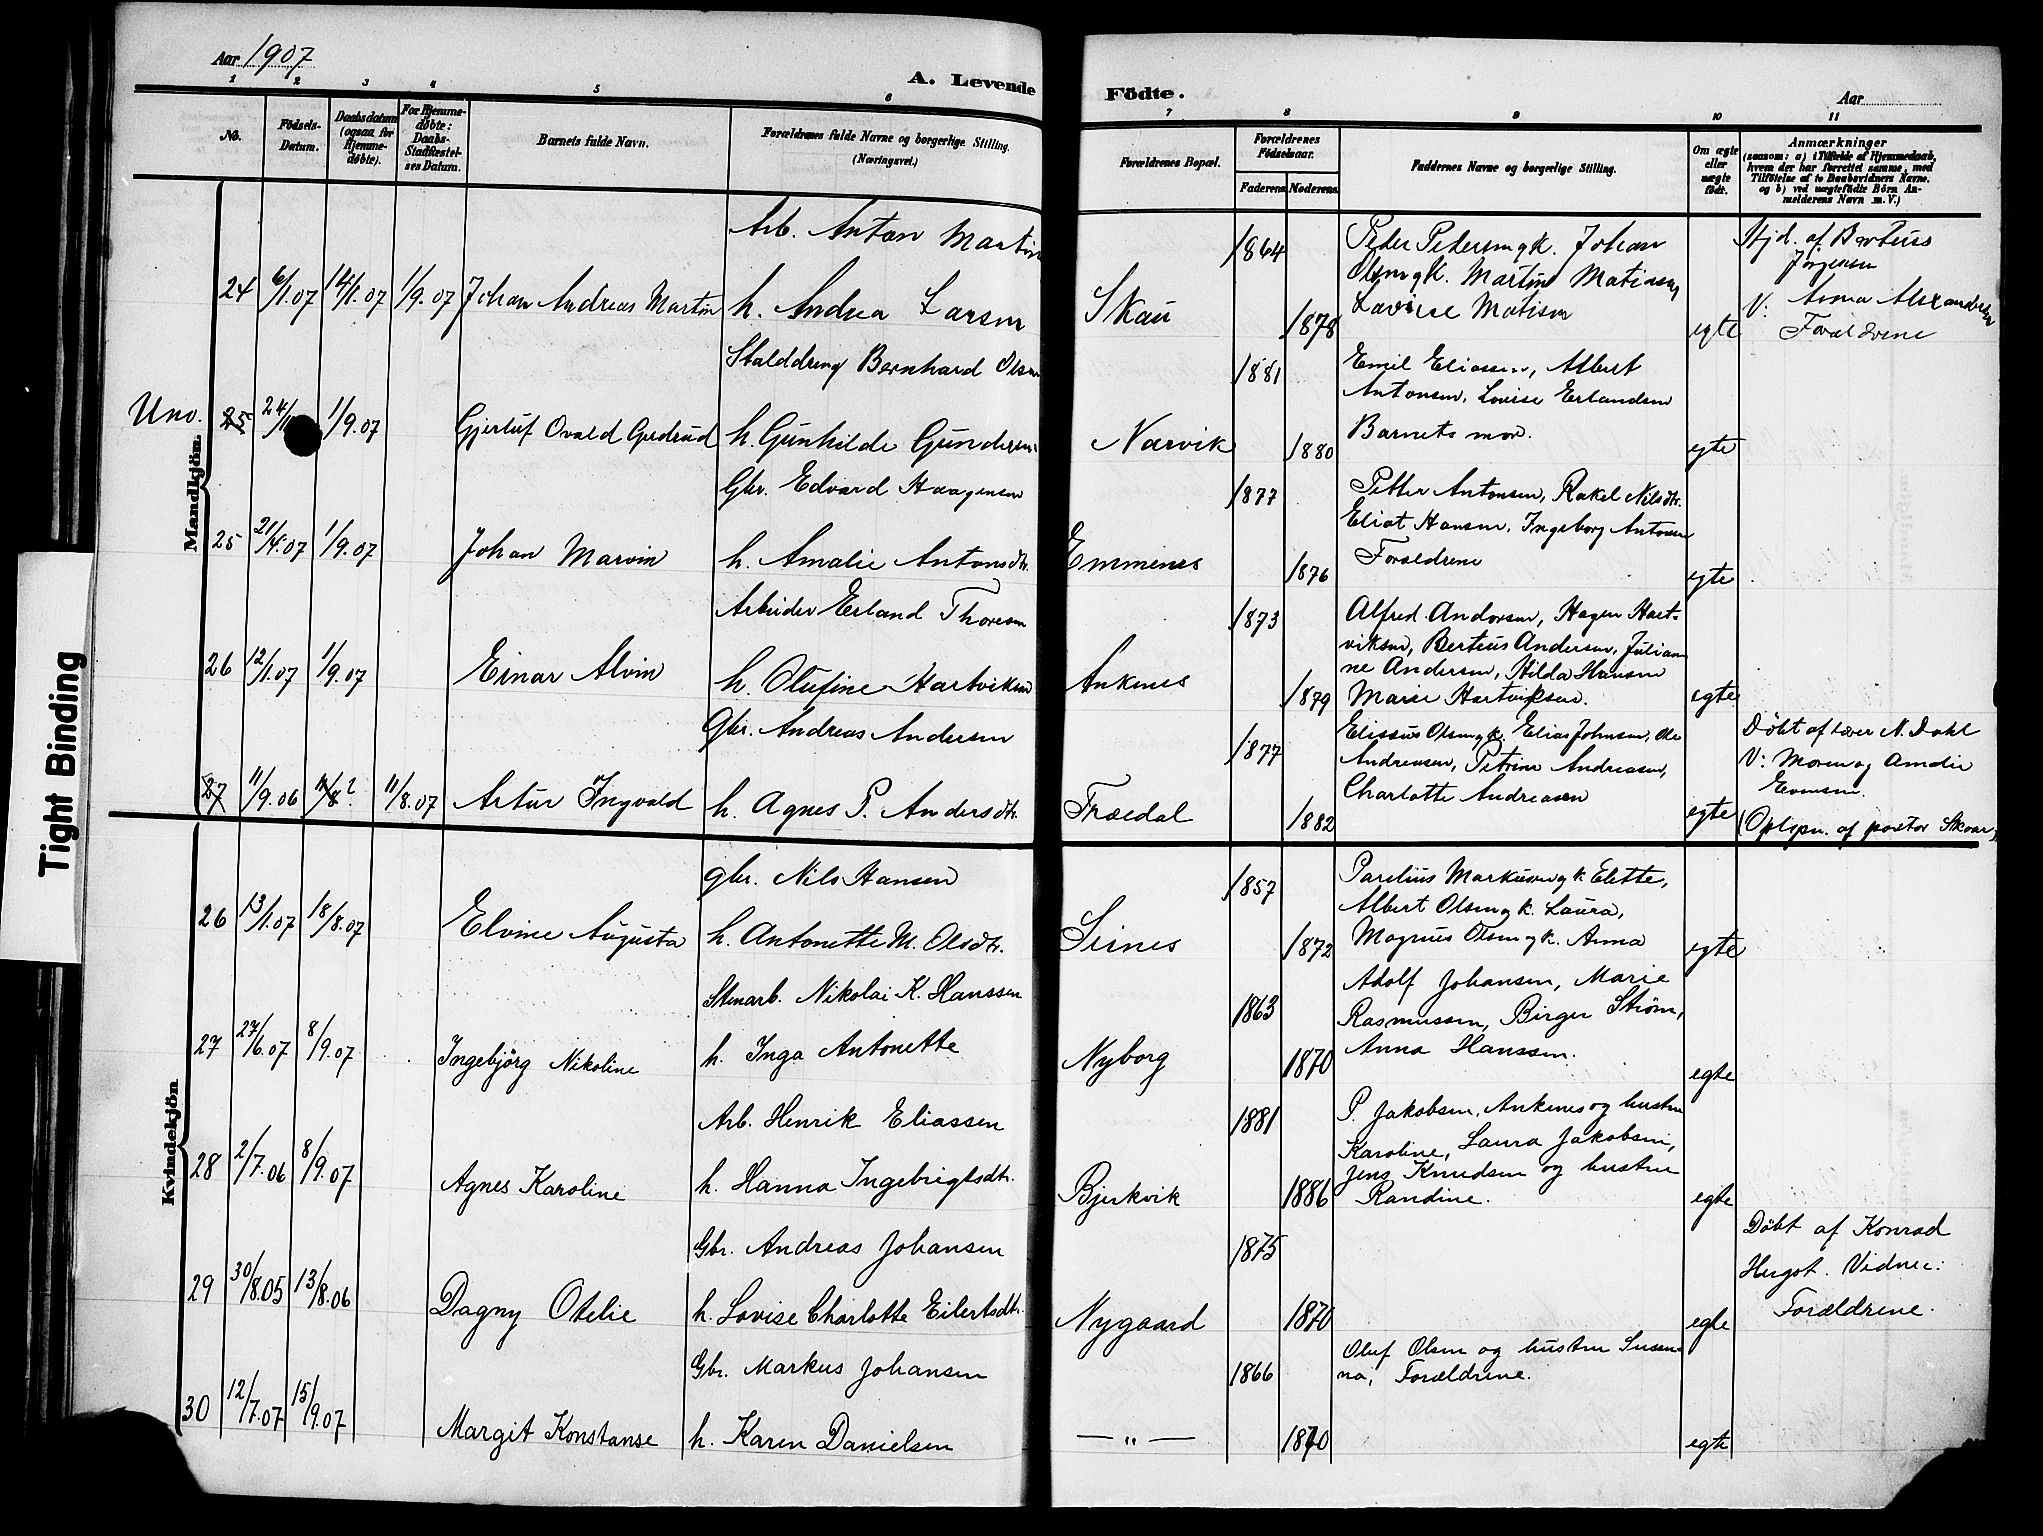 Aar 1907
A. Levende Födte.
Aar
1 2 3 4 5 6 7 8 9 10 11
No.
Födsels-
Datum.
Daabsdatum
(ogsaa for
Hjemme-
døbte).
For Hjemme-
døbte:
Daabs-
Stadfæstel-
ses Datum.
Barnets fulde Navn.
Forældrenes fulde Navne og borgerlige Stilling.
(Næringsvei.)
Forældrenes Bopæl.
Forældrenes
Födselsaar.
Faderens
Moderens
Faddernes Navne og borgerlige Stilling.
Om ægte
eller
uægte
født.
Anmærkninger
(saasom: a) i Tilfælde af Hjemmedaab,
hvem der har forrettet samme, med
Tilföielse af to Daabsvidners Navne.
og b) ved uægtefödte Börn An-
melderens Navn m. V.)
Mandkjön.
Arb. Anton Martin
24 6/1.07 14/1.07 1/9.07 Johan Andreas Martin h. Andrea Larsen
Skau
1864
1878
Peder Pedersen og k. Johan
Olsen og k. Martin Matisen,
Lovise Matisen
egte
Hjd. af Berteus
Jørgensen
V: Anna Alexandersen
Forældrene
Stalddreng Bernhard Olsen
Uno. 25 24/11 1/9.07 Gjerluf Ovald Gedrud h. Gunhilde Gundersen
Narvik
1881
1880
Emil Eliassen, Albert
Antonsen, Lovise Erlandsen
Barnets mor.
egte
Gbr. Edvard Haagensen
25 21/4.07 1/9.07 Johan Marvin h. Amalie Antonsdtr.
Emmenes
1877
1876
Petter Antonsen, Rakel Nilsdtr.
Eliot Hansen, Ingeborg Antonsen
Forældrene
egte
Arbeider Erland Thoresen
26 12/1.07 1/9.07 Einar Alvin h. Olufine Hartviksen
Ankenes
1873
1879
Alfred Andersen, Hagen Hart-
viksen, Berteus Andersen, Julian-
ne Andersen, Hilda Hansen
Marie Hartviksen.
egte
Gbr. Andreas Andersen
27 11/9.06 11/8? 11/8.07 Artur Ingvald h. Agnes P. Andersdtr.
Trældal
1877
1882
Elissæus Olsen og k. Elias Johnsen, Ole
Andreassen, Petrine Andreasen,
Charlotte Andreasen
egte
Döbt af lærer N. Dahl
V: Moren og Amalie
Evensen.
(Oplysn. af pastor Skaar)
Kvindekjön
gbr. Nils Hansen
26 13/1.07 18/8.07 Elvine Augusta h. Antonette M. Olsdtr.
Seines
1857
1872
Parelius Markussen og k. Elette,
Albert Olsen og k. Laura,
Magnus Olsen og k. Anna
egte
Stenarb. Nikolai K. Hanssen
27 27/6.07 8/9.07 Ingebjörg Nikoline h. Inga Antonette
Nyborg
1863
1870
Adolf Johansen, Marie
Rasmussen, Birger Strøm,
Anna Hanssen.
egte
Arb. Henrik Eliassen
28 2/7.06 8/9.07 Agnes Karoline h. Hanna Ingebrigtsdtr.
Bjerkvik
1881
1886
P. Jakobsen, Ankenes og hustru
Karoline, Laura Jakobsen,
Jens Knudsen og hustru
Randine.
egte
Gbr. Andreas Johansen
29 30/8.05 13/8.06 Dagny Otelie h. Lovise Charlotte Eilertsdtr.
Nygaard
1875
1870
egte
Döbt af Konrad
Hergot. Vidner:
Forældrene.
Gbr. Markus Johansen
30 12/7.07 15/9.07 Margit Konstanse h. Karen Danielsen
— " —
1866
1870
Oluf Olsen og hustru Susan-
na, Forældrene.
egte
Tight Binding